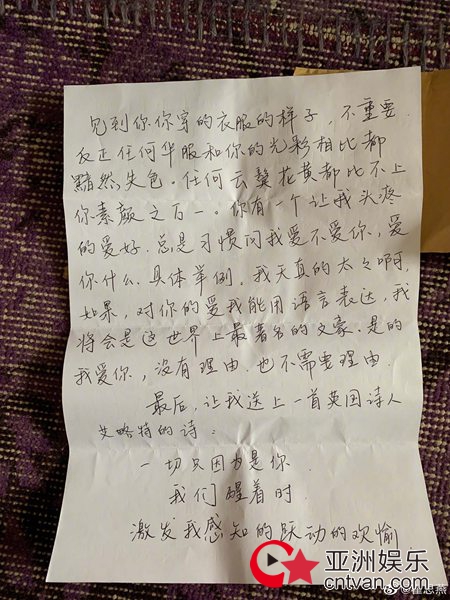 见到你你穿的衣服的样子，不重要
反正任何华服和你的光彩相比都
黯然失色。任何云鬓花黄都比不上
你素颜之百一。你有一个让我头疼
的爱好，总是习惯问我爱不爱你，爱
你什么，具体举例。我天真的太太啊，
如果，对你的爱我能用语言表达，我
将会是这世界上最著名的文豪。是的
我爱你，没有理由，也不需要理由。
最后，让我送上一首英国诗人
艾略特的诗：
一切只因为是你
我们醒着时
激发我感知的跃动的欢愉
亚洲娱乐
cntvan.com
@霍思燕